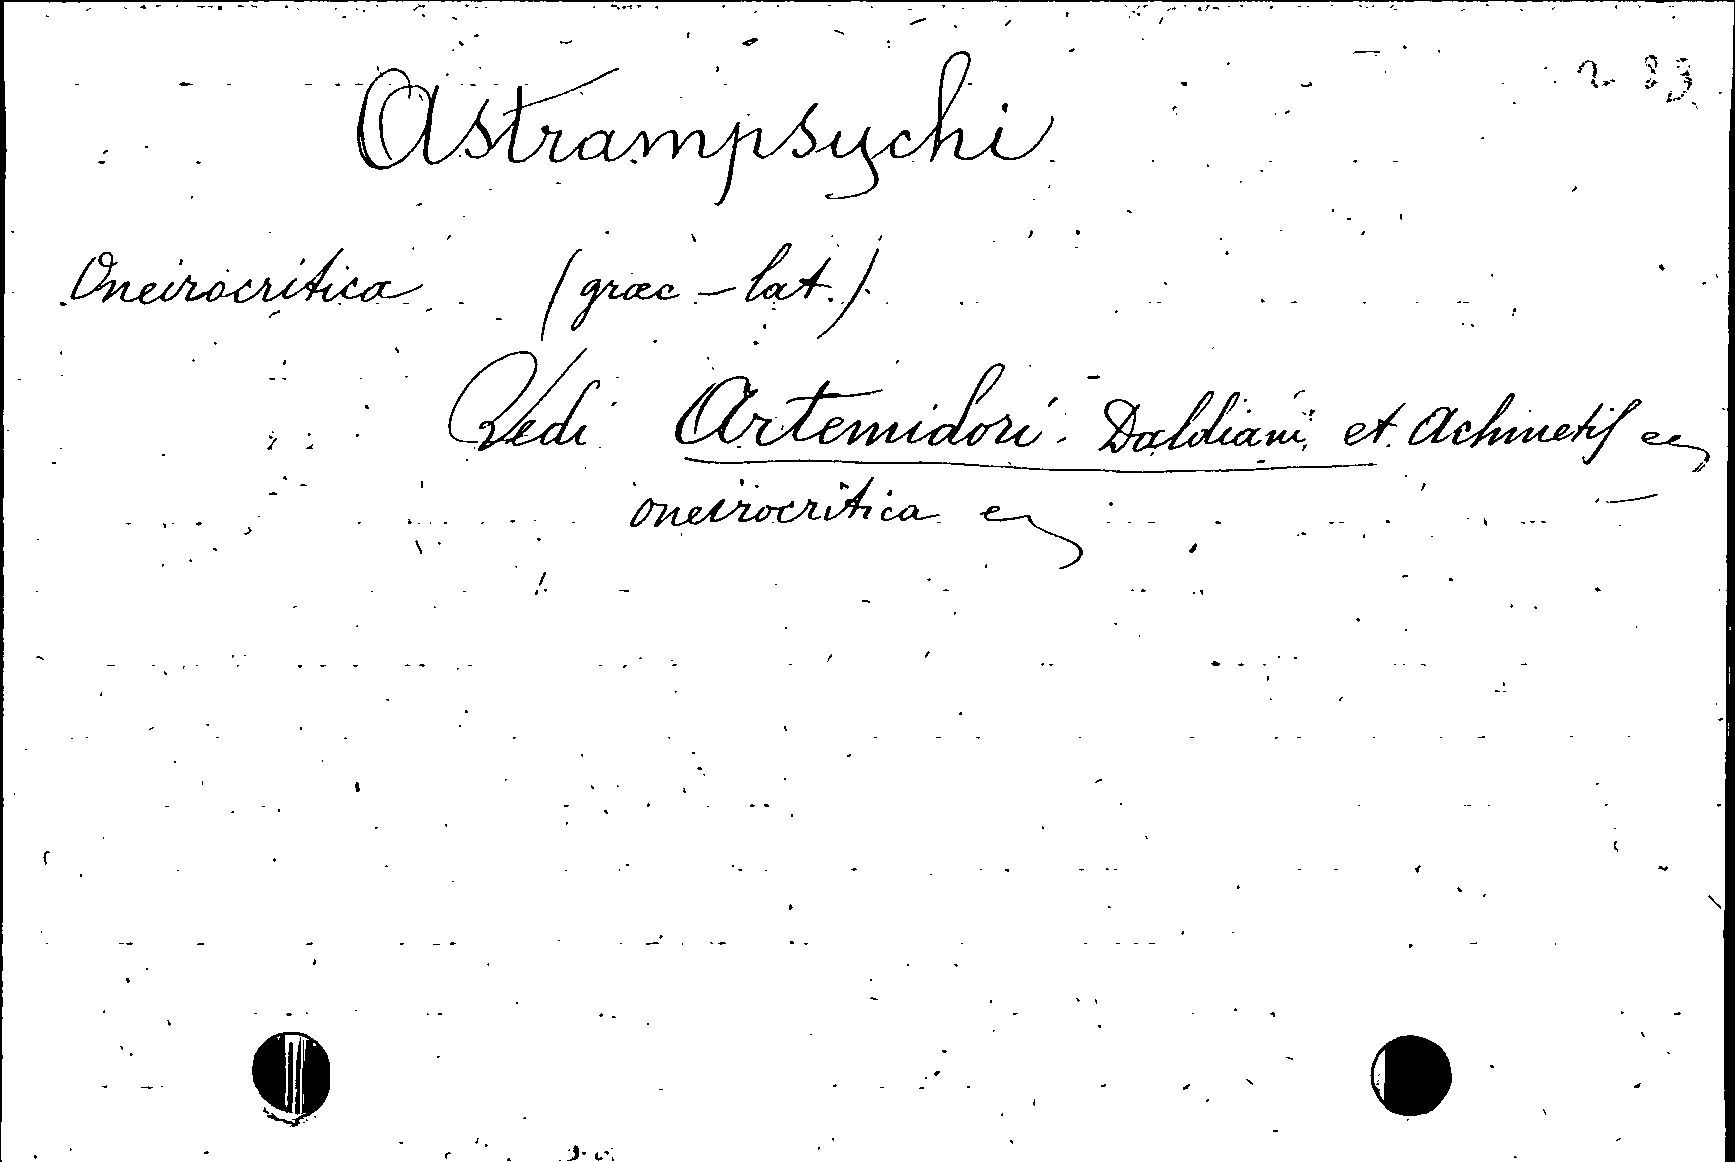 2 83
Astrampsychi
Oneirocritica (graec-lat.)
Vedi Artemidori Daldiani et Achmetis
oneirocritica